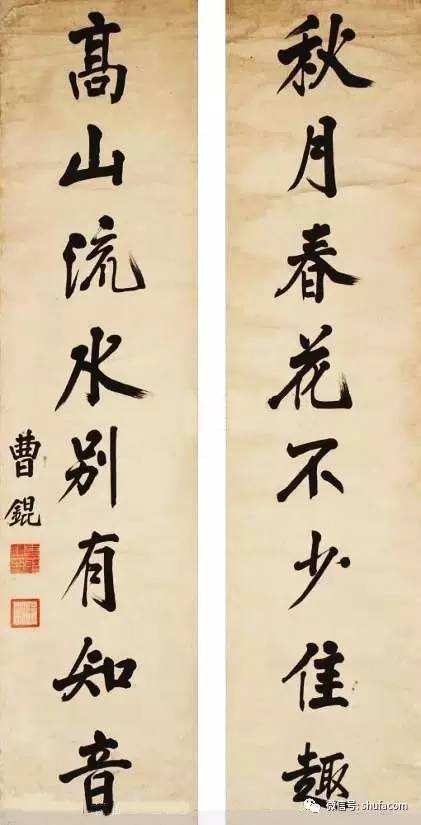 秋月春花不少佳趣
高山流水別有知音
曹錕
微信号: shufacom